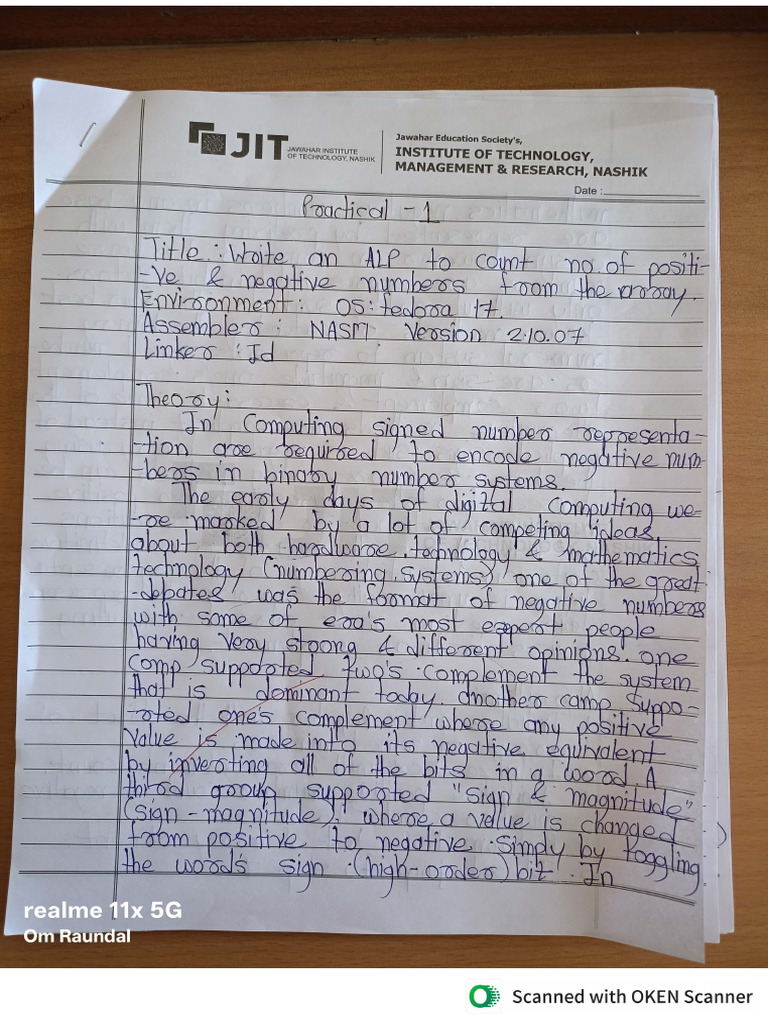 JIT
JAWAHAR INSTITUTE
OF TECHNOLOGY, NASHIK
Jawahar Education Society's,
INSTITUTE OF TECHNOLOGY,
MANAGEMENT & RESEARCH, NASHIK
Date :
Practical - 1
Title : Write an ALP to count no. of positi-
-ve & negative numbers from the array.
Environment : OS : fedora 17.
Assembler : NASM Version 2.10.07
Linker : ld
Theory :
In Computing signed number representa-
-tion are required to encode negative num-
-bers in binary number systems.
The early days of digital computing we-
-re marked by a lot of competing ideas
about both hardware technology & mathematics
technology (numbering systems) one of the great
-debates was the format of negative numbers
with some of era's most expert people
having very strong & different opinions. one
comp supported two's complement the system
that is dominant today. another camp suppo-
-rted ones complement where any positive
value is made into its negative equivalent
by inverting all of the bits in a word. A
third group supported "sign & magnitude"
(sign - magnitude). where a value is changed
from positive to negative simply by toggling
the word's sign (high-order) bit. In
realme 11x 5G
Om Raundal
Scanned with OKEN Scanner